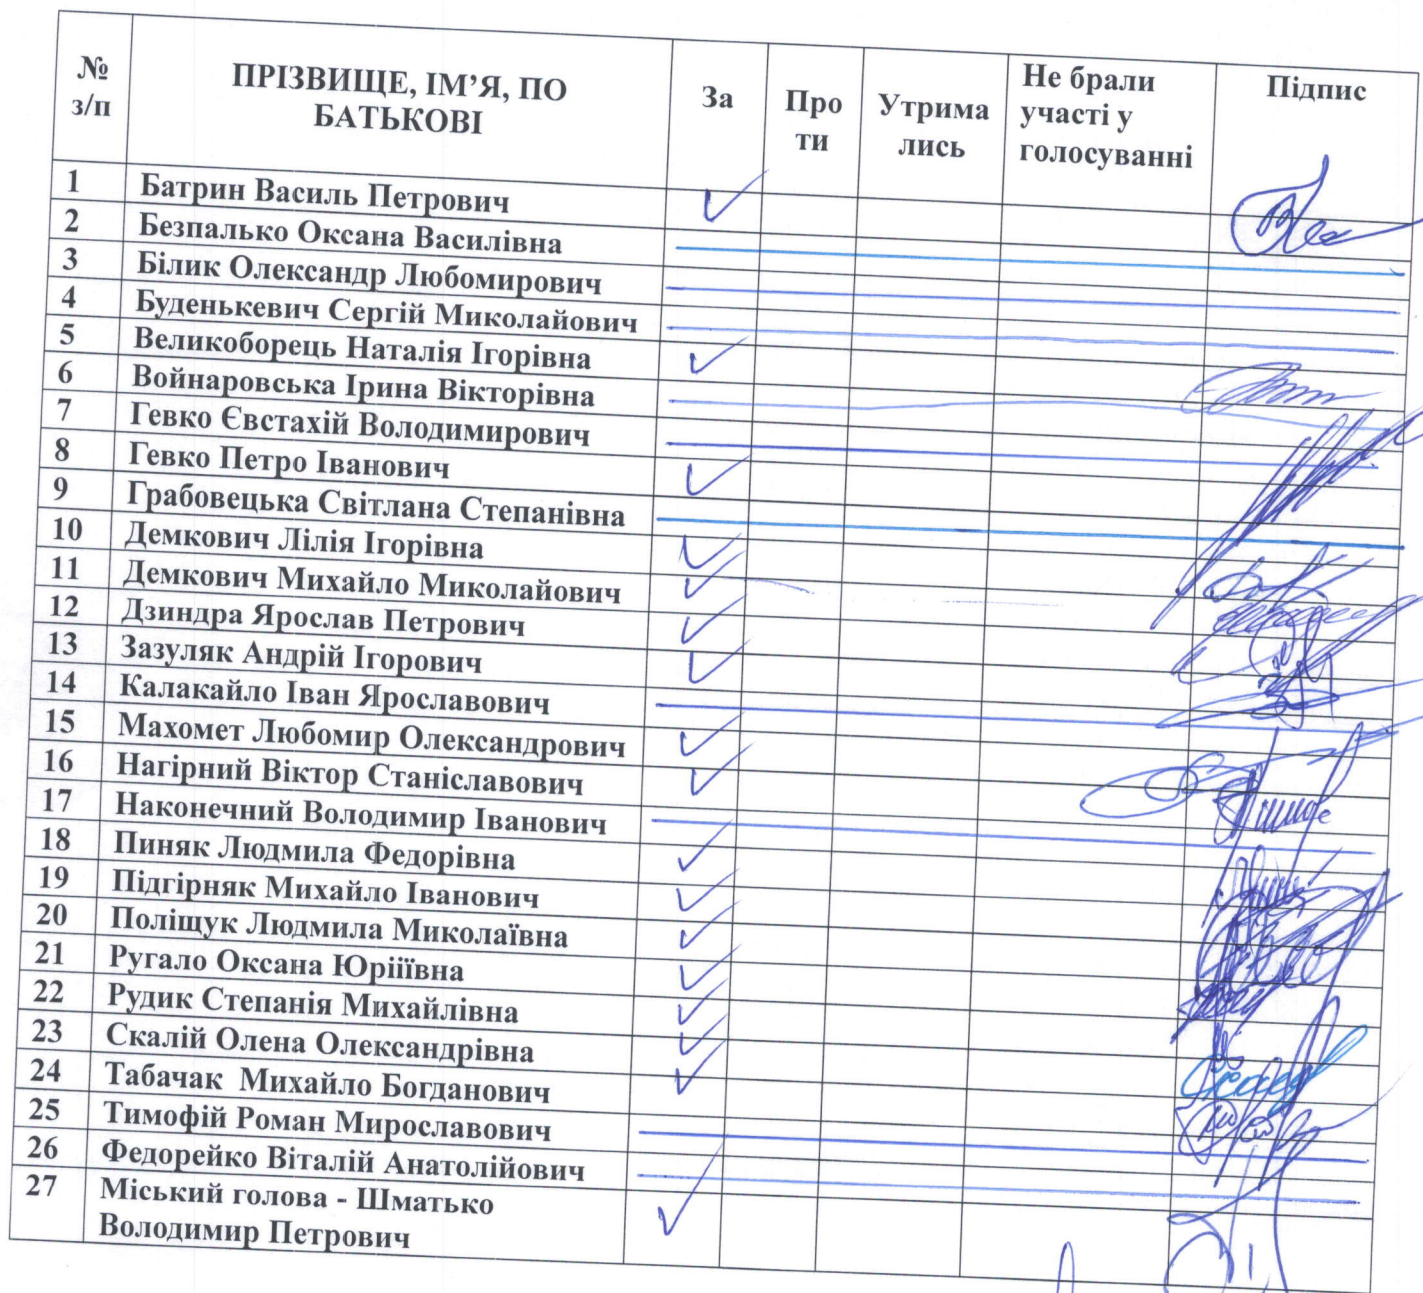 № з/п
ПРІЗВИЩЕ, ІМ’Я, ПО БАТЬКОВІ
За
Про
ти
Утрима
лись
Не брали
участі у
голосуванні
Підпис
1 Батрин Василь Петрович ✓
2 Безпалько Оксана Василівна
3 Білик Олександр Любомирович
4 Буденькевич Сергій Миколайович
5 Великоборець Наталія Ігорівна ✓
6 Войнаровська Ірина Вікторівна
7 Гевко Євстахій Володимирович
8 Гевко Петро Іванович ✓
9 Грабовецька Світлана Степанівна
10 Демкович Лілія Ігорівна ✓
11 Демкович Михайло Миколайович ✓
12 Дзиндра Ярослав Петрович ✓
13 Зазуляк Андрій Ігорович ✓
14 Калакайло Іван Ярославович
15 Махомет Любомир Олександрович ✓
16 Нагірний Віктор Станіславович ✓
17 Наконечний Володимир Іванович
18 Пиняк Людмила Федорівна ✓
19 Підгірняк Михайло Іванович ✓
20 Поліщук Людмила Миколаївна ✓
21 Ругало Оксана Юріїівна ✓
22 Рудик Степанія Михайлівна ✓
23 Скалій Олена Олександрівна ✓
24 Табачак Михайло Богданович ✓
25 Тимофій Роман Мирославович
26 Федорейко Віталій Анатолійович
27 Міський голова - Шматько
Володимир Петрович ✓